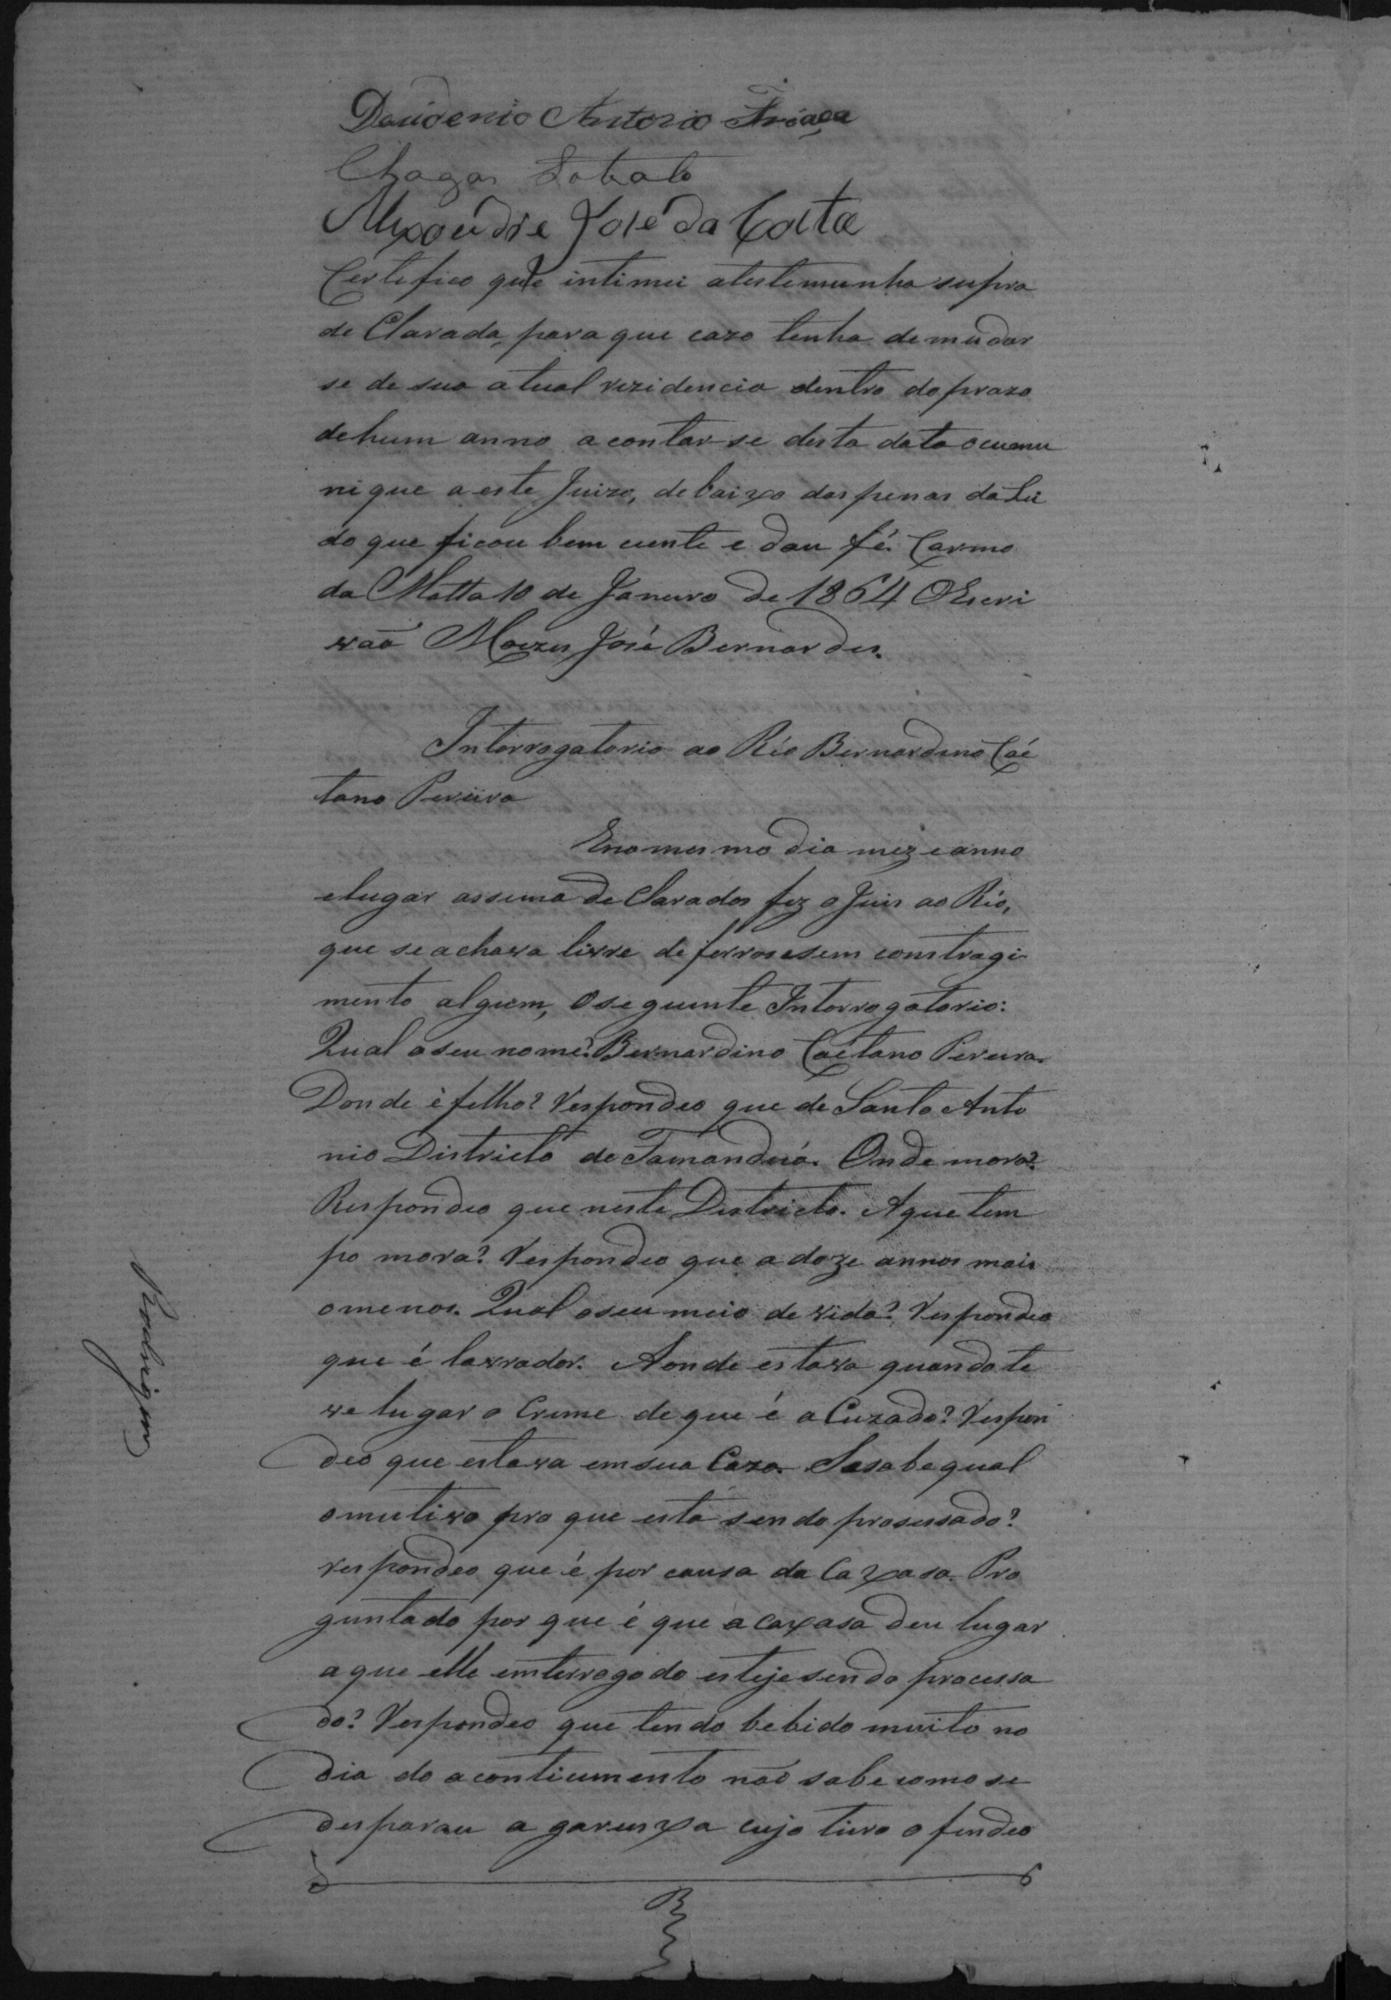 Antonio
Chagas Lobato
Alexandre José da Costa
Certefico que intimei atestemunha supra
de Clarada, para que cazo tenha de mudar
se de sua atual rezidencia dentro do prazo
de hum anno a contar-se desta data o cumu
nique a este Juizo, debaixo das penas da Lei
do que ficou bem ciente e dou fé. Carmo
da Matta 10 de Janeiro de 1864 O Escri
vaõ Moizes José Bernardes.
Interrogatorio ao Réo Bernardino Caé
tano Pereira
E no mesmo dia mez e anno
e lugar assima de Clarados fez o Juis ao Réo,
que se achava livre de ferros e sem constragi
mento algum, o seguinte Interrogatorio:
Qual o seu nome? Bernardino Caétano Pereira.
Donde é felho? Respondeo que de Santo Anto
nio Districto de Tamanduá. Onde mora?
Respondeo que neste Destricto. A que tem
po mora? Respondeo que a doze annos mais
o menos. Qual o seu meio de vida? Respondeo
que é lavrador. Aonde estava quando te
ve lugar o Crime de que é a Cuzado? Respon
deo que estava em sua Caza. Se sabe qual
o mutivo pro que está sendo prosessado?
respondeo que é por causa da Caxasa. Pro
guntado por que é que a caxasa deu lugar
a que elle enterrogado esteje sendo processa
do? Respondeo que tendo bebido muito no
dia do aconticimento naõ sabe como se
desparau a garruxa cujo tiro ofendeo
Rodrigues